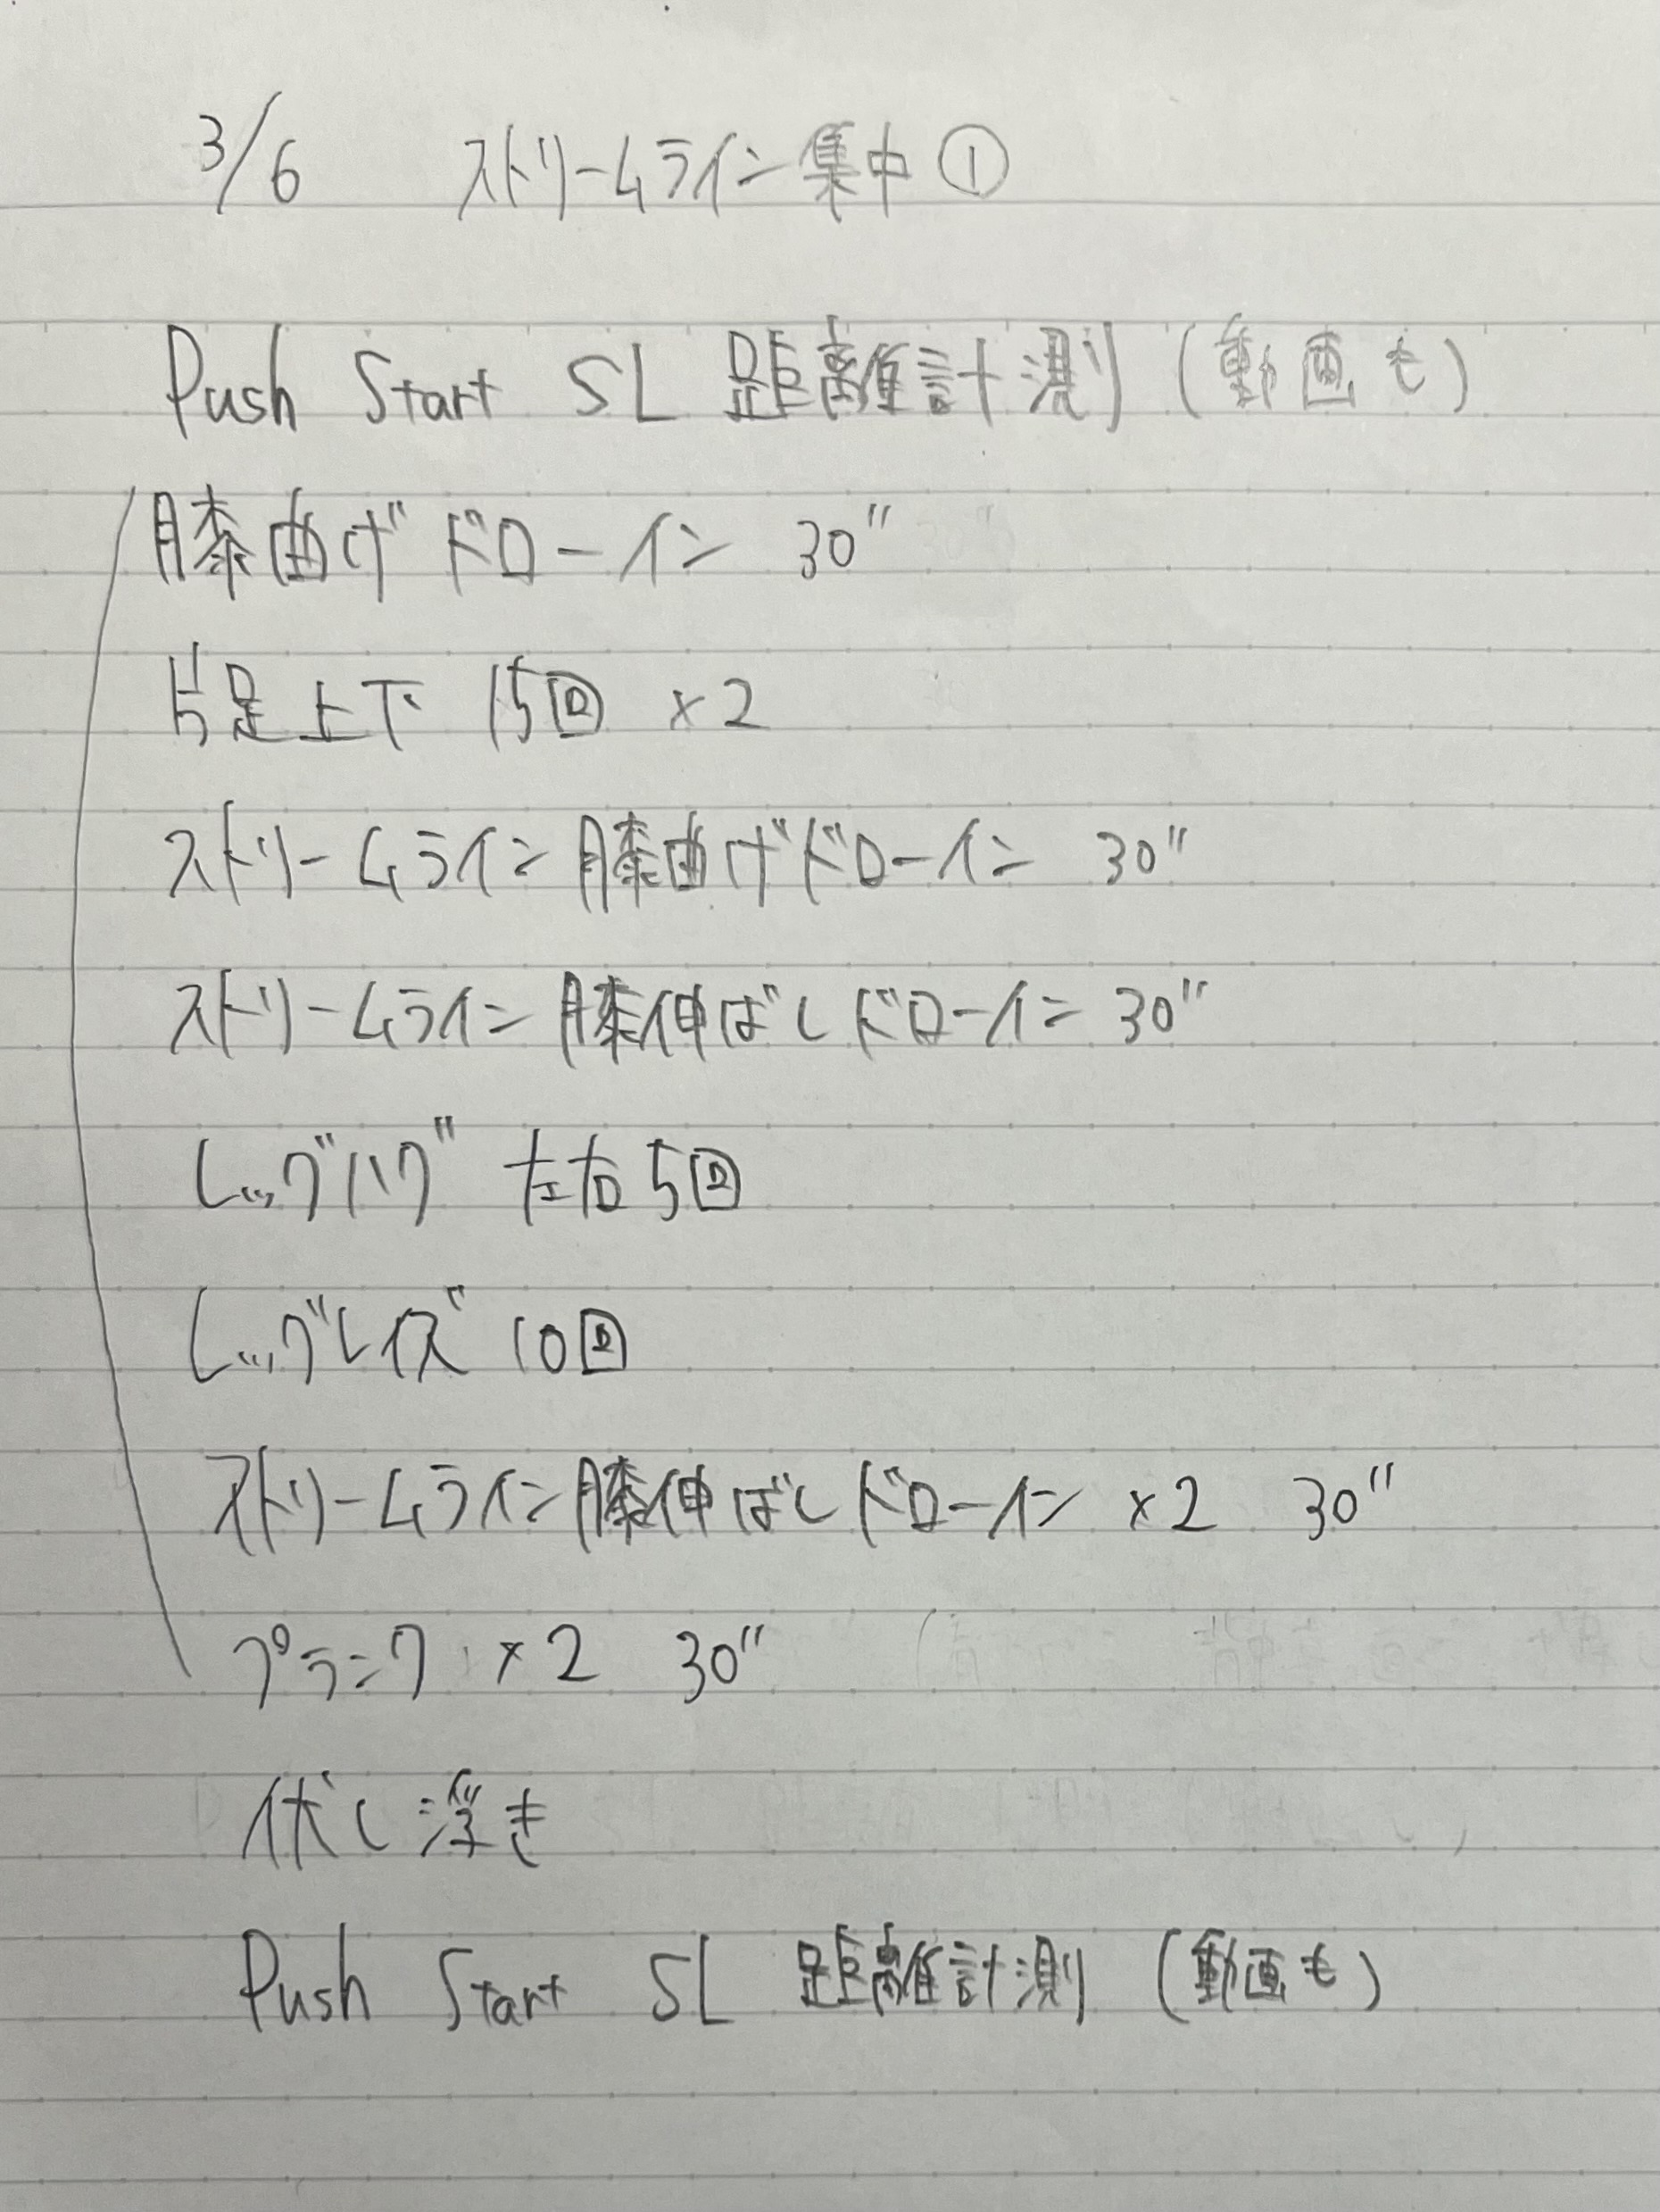 3/6 ストリームライン集中①
Push Start SL 距離計測(動画も)
膝曲げドローイン 30"
片足上下 15回 ×2
ストリームライン膝曲げドローイン 30"
ストリームライン膝伸ばしドローイン 30"
レッグハグ 左右5回
レッグレイズ 10回
ストリームライン膝伸ばしドローイン ×2 30"
プランク ×2 30"
伏し浮き
Push Start SL 距離計測(動画も)